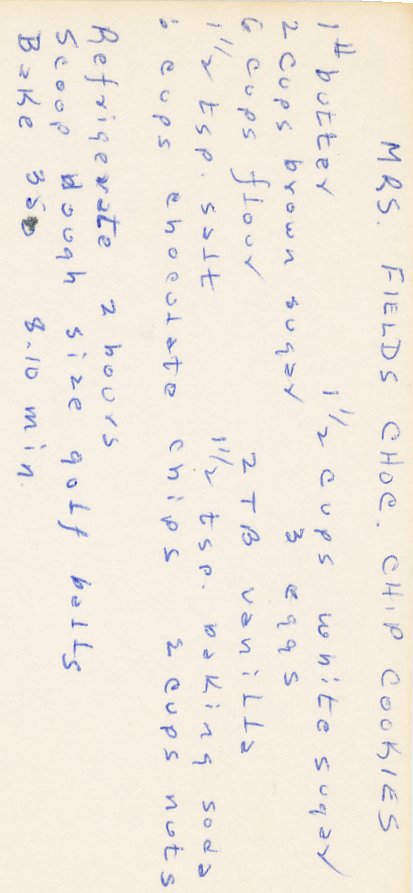 MRS. FIELDS CHOC. CHIP COOKIES
1# butter 1 1/2 cups white sugar
2 cups brown sugar 3 eggs
6 cups flour 2 TB vanilla
1 1/2 tsp. salt 1 1/2 tsp. baking soda
cups chocolate chips 2 cups nuts
Refrigerate 2 hours
Scoop dough size golf balls
Bake 350 8-10 min.